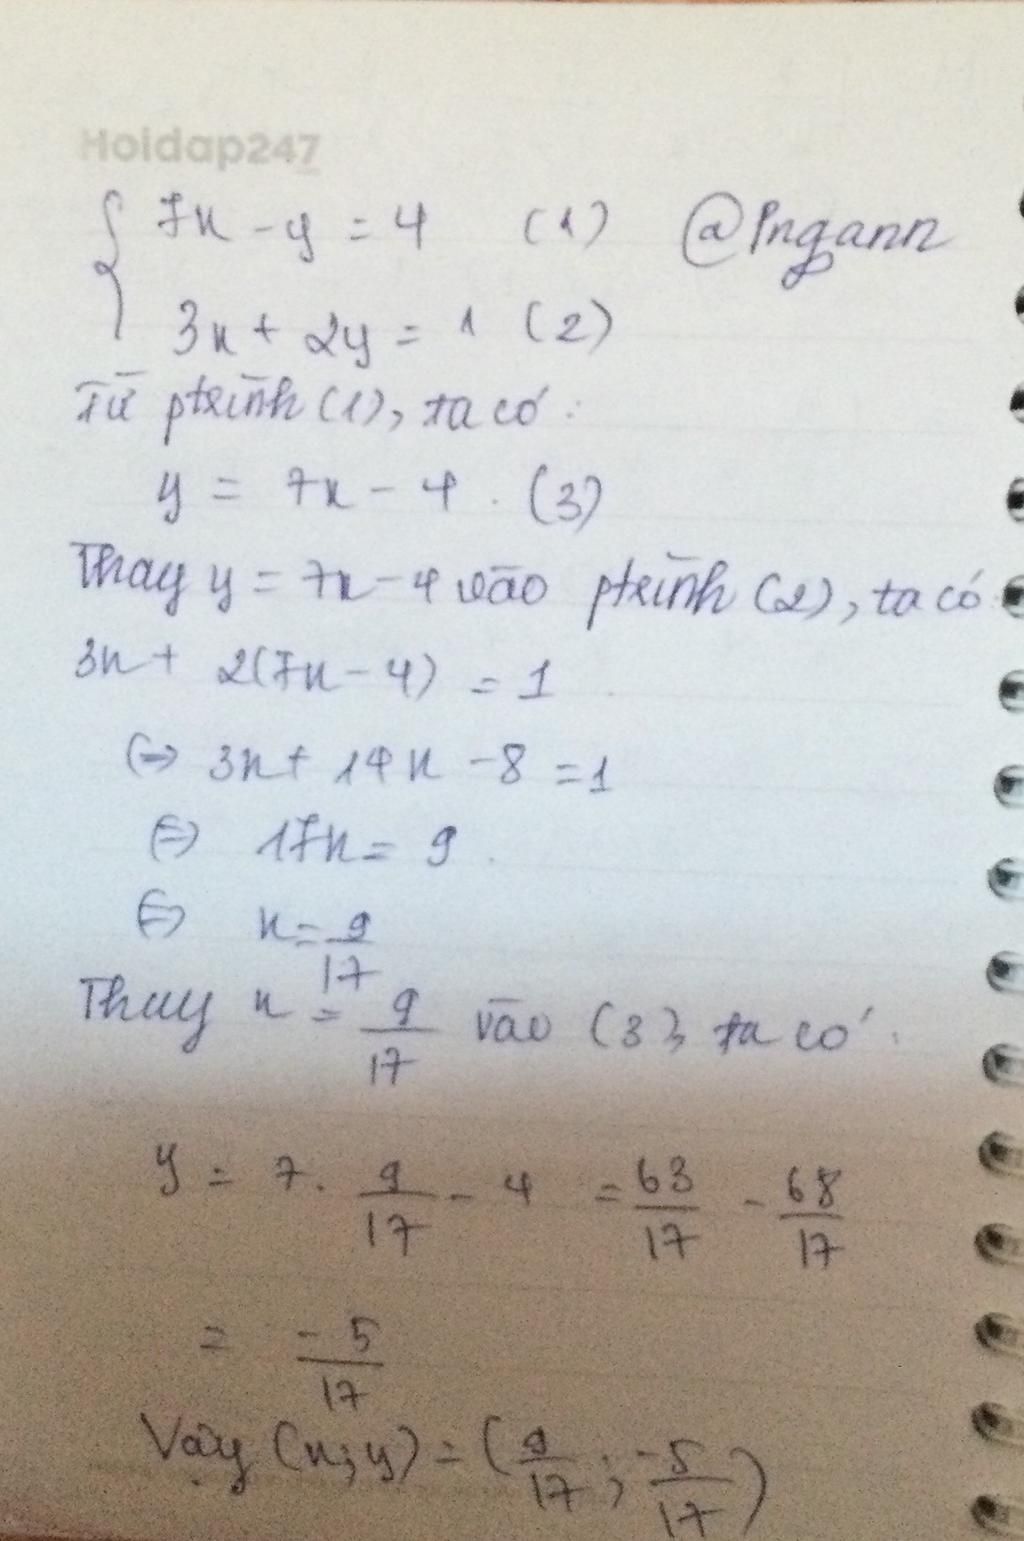 Hoidap247
7x - y = 4 (1) @Pngann
3x + 2y = 1 (2)
Từ ptrình (1), ta có :
y = 7x - 4 . (3)
Thay y = 7x - 4 vào ptrình (2), ta có
3x + 2(7x - 4) = 1
⇔ 3x + 14x - 8 = 1
⇔ 17x = 9 .
⇔ x = 9/17
Thay x = 9/17 vào (3), ta có :
y = 7 . 9/17 - 4 = 63/17 - 68/17
= -5/17
Vậy (x; y) = (9/17 ; -5/17)